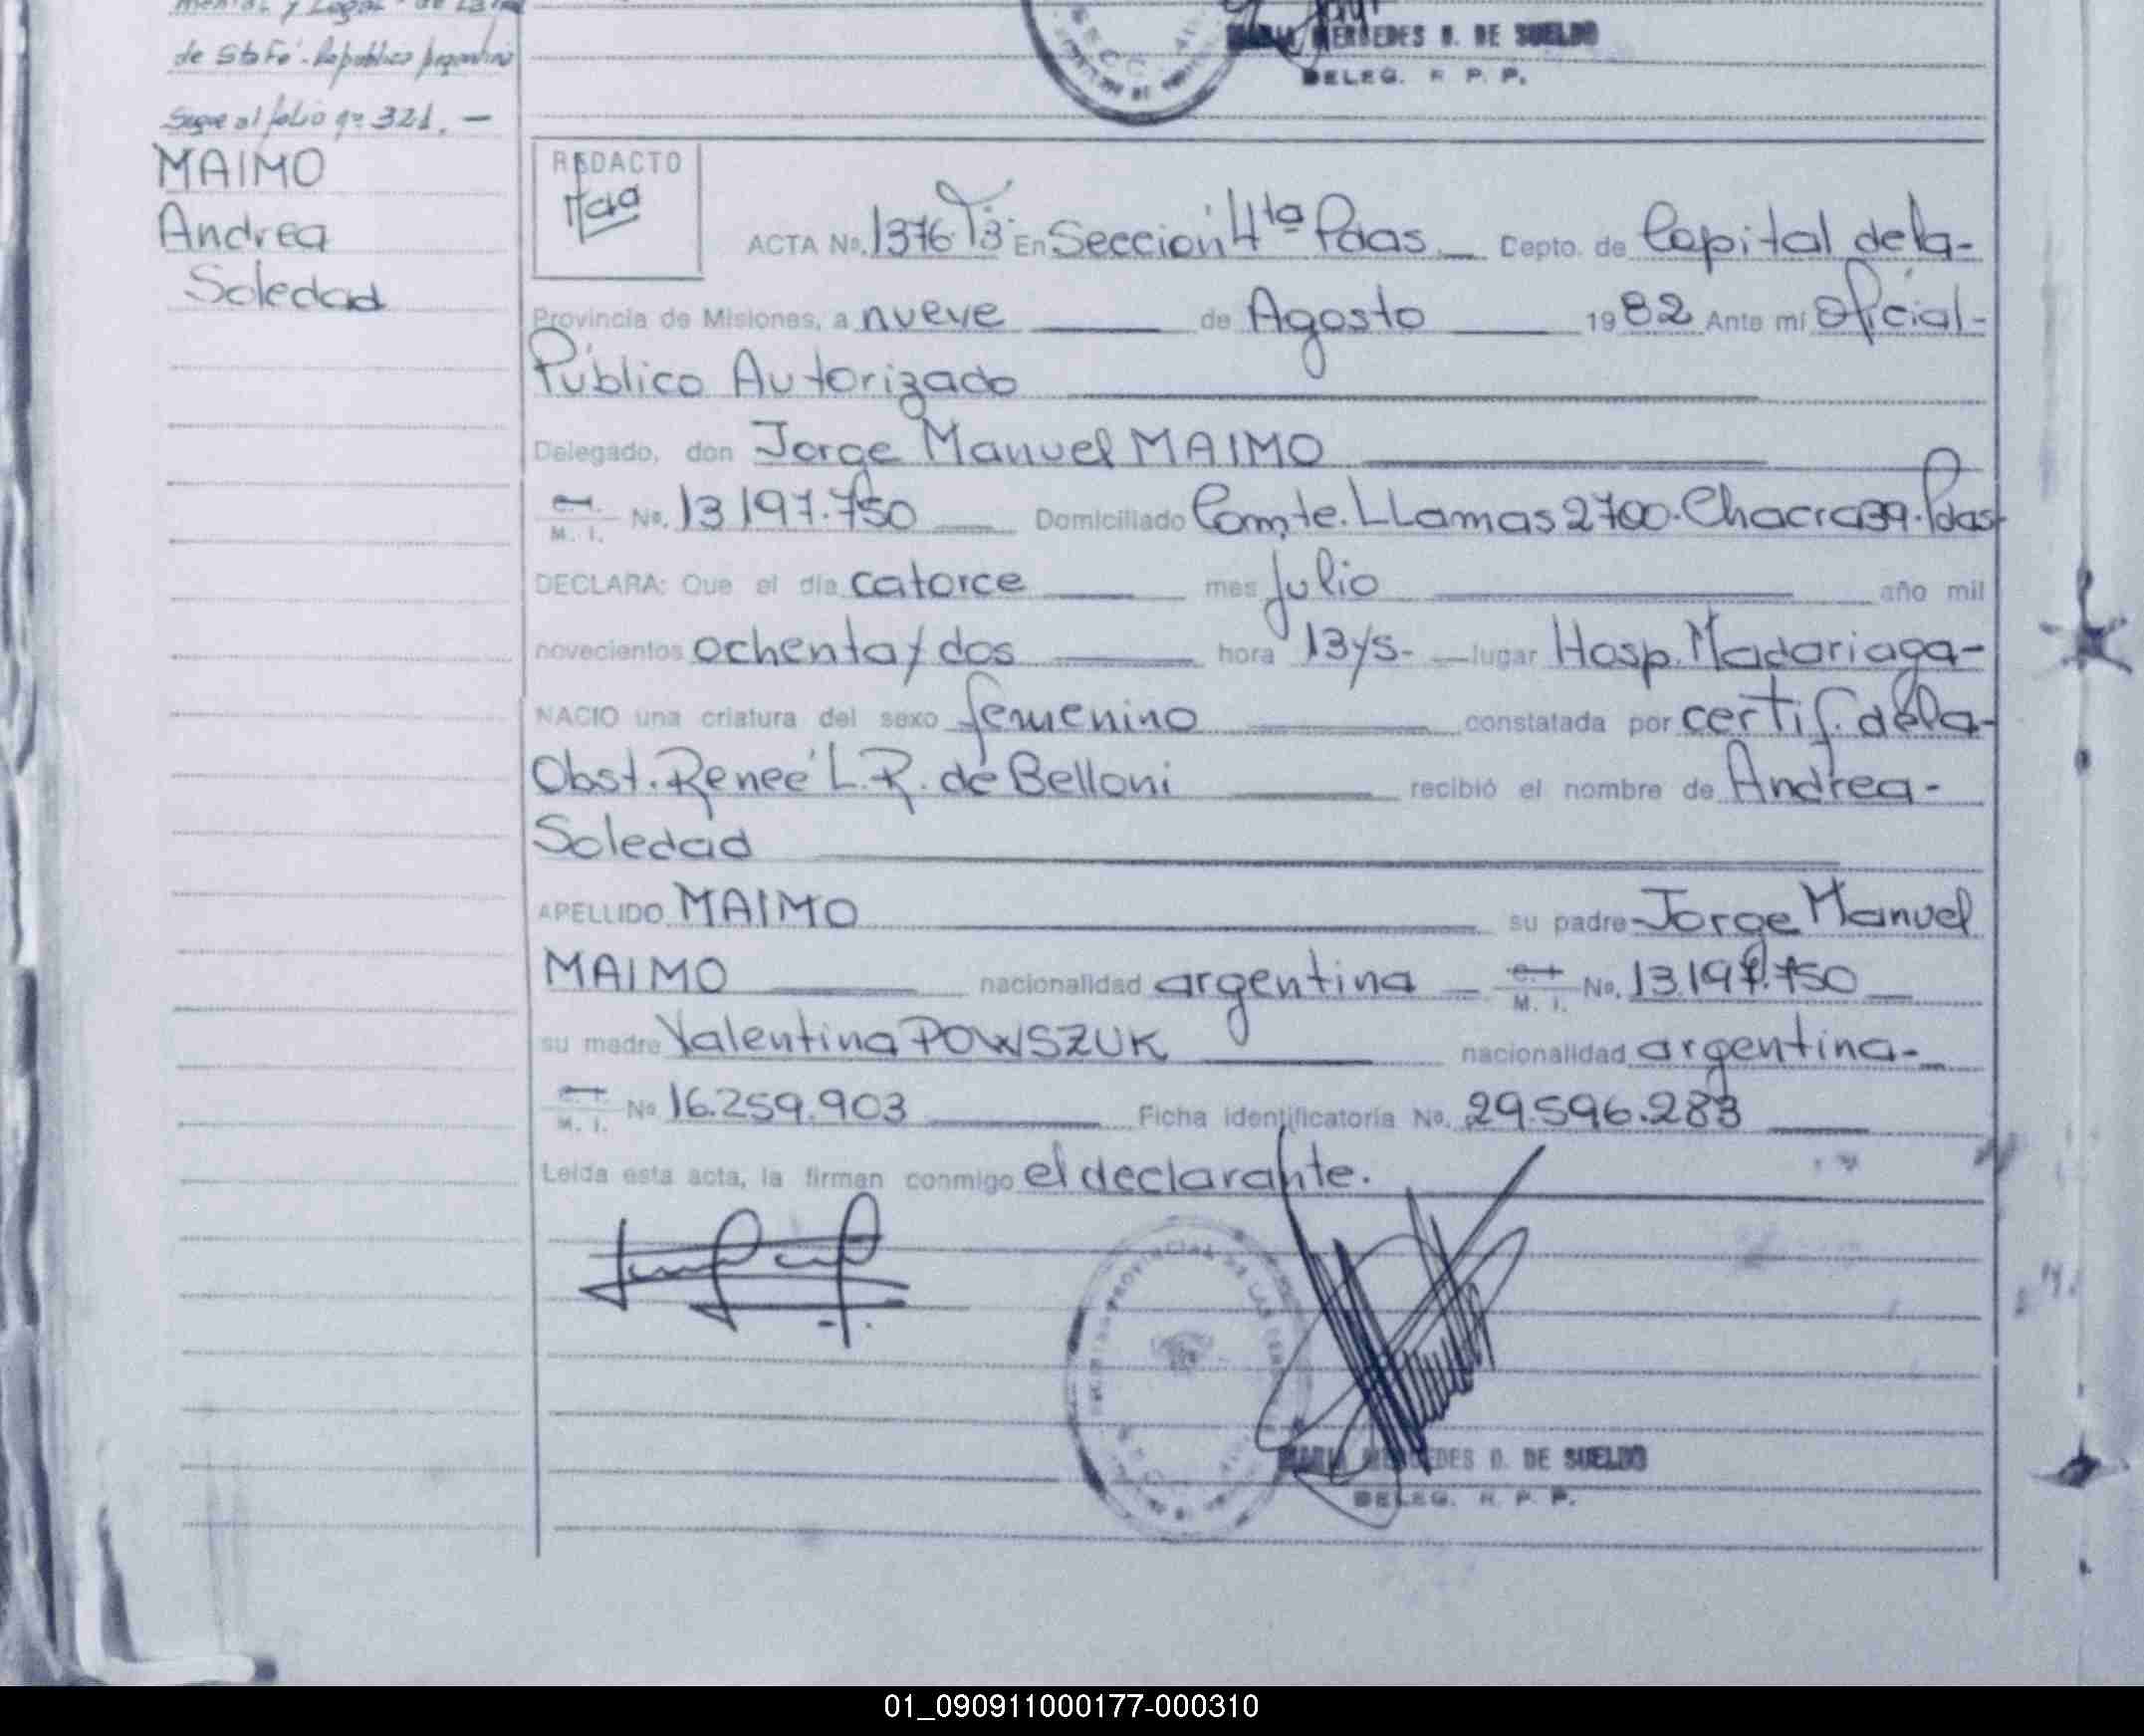 de Sta Fé - República Argentina
Sigue al folio nº 321. —
MARIA MERCEDES D. DE SUELDO
DELEG. R. P. P.
MAIMO
Andrea
Soledad
REDACTO
ACTA No. 1376 T3: En Sección 4ta Pdas. Depto. de Capital de la-
Provincia de Misiones, a nueve de Agosto 1982 Ante mí Oficial-
Público Autorizado
Delegado, don Jorge Manuel MAIMO
M. I. No. 13197.750 Domiciliado Comte. LLamas 2700. Chacra 39. Pdas
DECLARA: Que el día catorce mes julio año mil
novecientos ochenta y dos hora 13 y 5- lugar Hosp. Madariaga-
NACIO una criatura del sexo femenino constatada por certif. de la-
Obst. Reneé L. R. de Belloni recibió el nombre de Andrea-
Soledad
APELLIDO MAIMO su padre Jorge Manuel
MAIMO nacionalidad argentina M. I. No. 13.197.750
su madre Valentina POWSZUK nacionalidad argentina-
M. I. No 16.259.903 Ficha identificatoria No. 29.596.283
Leida esta acta, la firman conmigo el declarante.
PROVINCIAL DE LAS
MARIA MERCEDES D. DE SUELDO
DELEG. R. P. P.
01_090911000177-000310